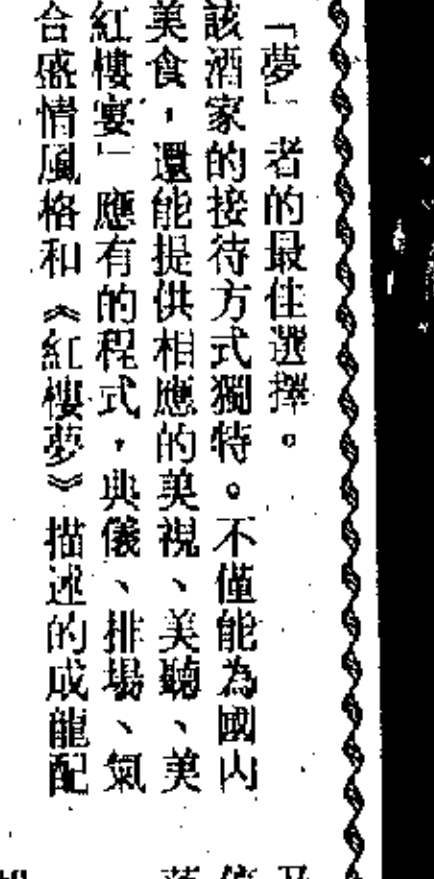 「夢」者的最佳選擇。
該酒家的接待方式獨特。不僅能為國內
美食，還能提供相應的美視、美聽、美
紅樓宴」應有的程式，典儀、排場、氣
合盛情風格和《紅樓夢》描述的成龍配